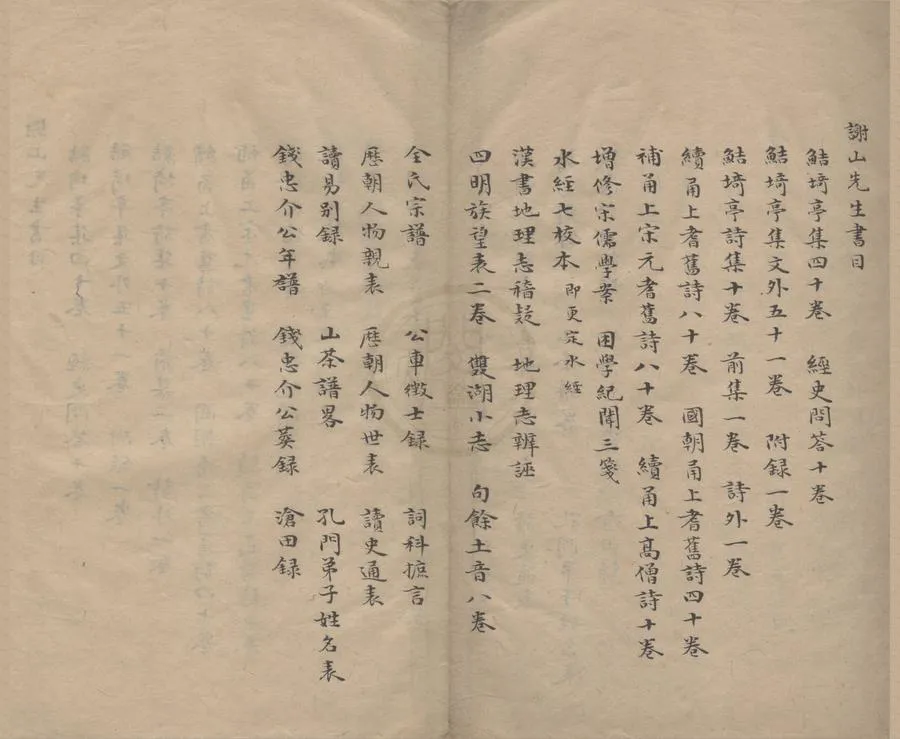 謝山先生書目
鮚埼亭集四十卷　經史問答十卷
鮚埼亭集文外五十一卷　附録一卷
鮚埼亭詩集十卷　前集一卷　詩外一卷
續甬上耆舊詩八十卷　國朝甬上耆舊詩四十卷
補甬上宋元耆舊詩八十卷　續甬上髙僧詩十卷
增修宗儒學案　困學紀聞三箋
水經七校本　即更定水經
漢書地理志稽疑　地理志辨誣
四明族望表二卷　雙湖小志　句餘土音八卷
全氏宗譜　公車徴士録　詞科摭言
歷朝人物親表　歷朝人物世表　讀史通表
讀易別録　山茶譜畧　孔門弟子姓名表
錢忠介公年譜　錢忠介公葬録　滄田録